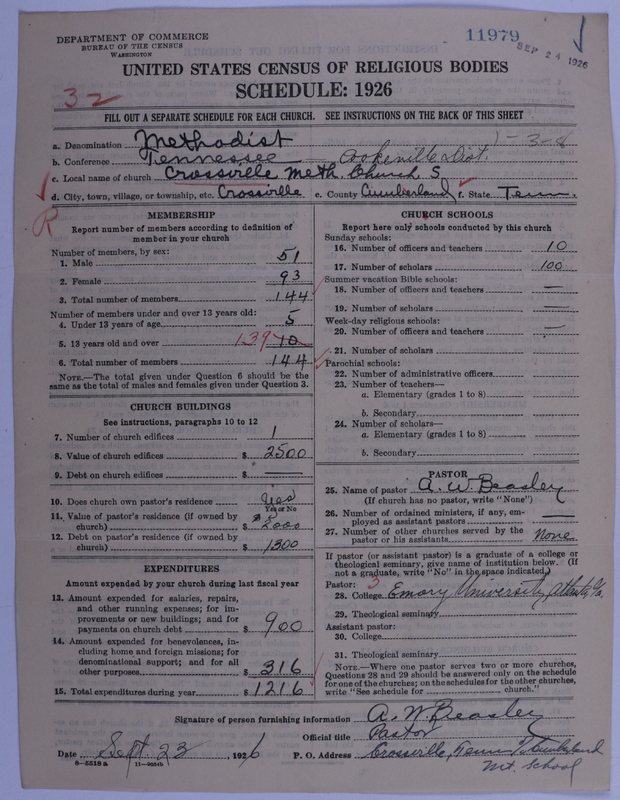 DEPARTMENT OF COMMERCE
BUREAU OF THE CENSUS
WASHINGTON
11979
SEP 24 1926
UNITED STATES CENSUS OF RELIGIOUS BODIES
32
SCHEDULE: 1926
FILL OUT A SEPARATE SCHEDULE FOR EACH CHURCH. SEE INSTRUCTIONS ON THE BACK OF THIS SHEET
a. Denomination Methodist 1-3-8
b. Conference Tennessee Cookeville Dist.
c. Local name of church Crossville Meth. Church S
d. City, town, village, or township, etc. Crossville e. County Cumberland f. State Tenn.
R
MEMBERSHIP
Report number of members according to definition of
member in your church
Number of members, by sex:
1. Male 51
2. Female 93
3. Total number of members 144
Number of members under and over 13 years old:
4. Under 13 years of age 5
5. 13 years old and over 139 10
6. Total number of members 144
NOTE.—The total given under Question 6 should be the
same as the total of males and females given under Question 3.
CHURCH BUILDINGS
See instructions, paragraphs 10 to 12
7. Number of church edifices 1
8. Value of church edifices $ 2500
9. Debt on church edifices $ —
10. Does church own pastor's residence Yes
Yes or No
11. Value of pastor's residence (if owned by
church) $ 2000
12. Debt on pastor's residence (if owned by
church) $ 1300
EXPENDITURES
Amount expended by your church during last fiscal year
13. Amount expended for salaries, repairs,
and other running expenses; for im-
provements or new buildings; and for
payments on church debt $ 900
14. Amount expended for benevolences, in-
cluding home and foreign missions; for
denominational support; and for all
other purposes $ 316
15. Total expenditures during year $ 1216
CHURCH SCHOOLS
Report here only schools conducted by this church
Sunday schools:
16. Number of officers and teachers 10
17. Number of scholars 100
Summer vacation Bible schools:
18. Number of officers and teachers —
19. Number of scholars —
Week-day religious schools:
20. Number of officers and teachers —
21. Number of scholars
Parochial schools:
22. Number of administrative officers
23. Number of teachers—
a. Elementary (grades 1 to 8)
b. Secondary
24. Number of scholars—
a. Elementary (grades 1 to 8)
b. Secondary
PASTOR
25. Name of pastor A. W. Beasley
(If church has no pastor, write "None")
26. Number of ordained ministers, if any, em-
ployed as assistant pastors —
27. Number of other churches served by the
pastor or his assistants None
If pastor (or assistant pastor) is a graduate of a college or
theological seminary, give name of institution below. (If
not a graduate, write "No" in the space indicated.)
Pastor: 3
28. College Emory University, Atlanta, Ga.
29. Theological seminary
Assistant pastor:
30. College
31. Theological seminary
NOTE.—Where one pastor serves two or more churches,
Questions 28 and 29 should be answered only on the schedule
for one of the churches; on the schedules for the other churches,
write "See schedule for church."
Signature of person furnishing information A. W. Beasley
Official title Pastor
Date Sept. 23, 1926 P. O. Address Crossville, Tenn Cumberland
Mt. School
8-5518a 11-9054b